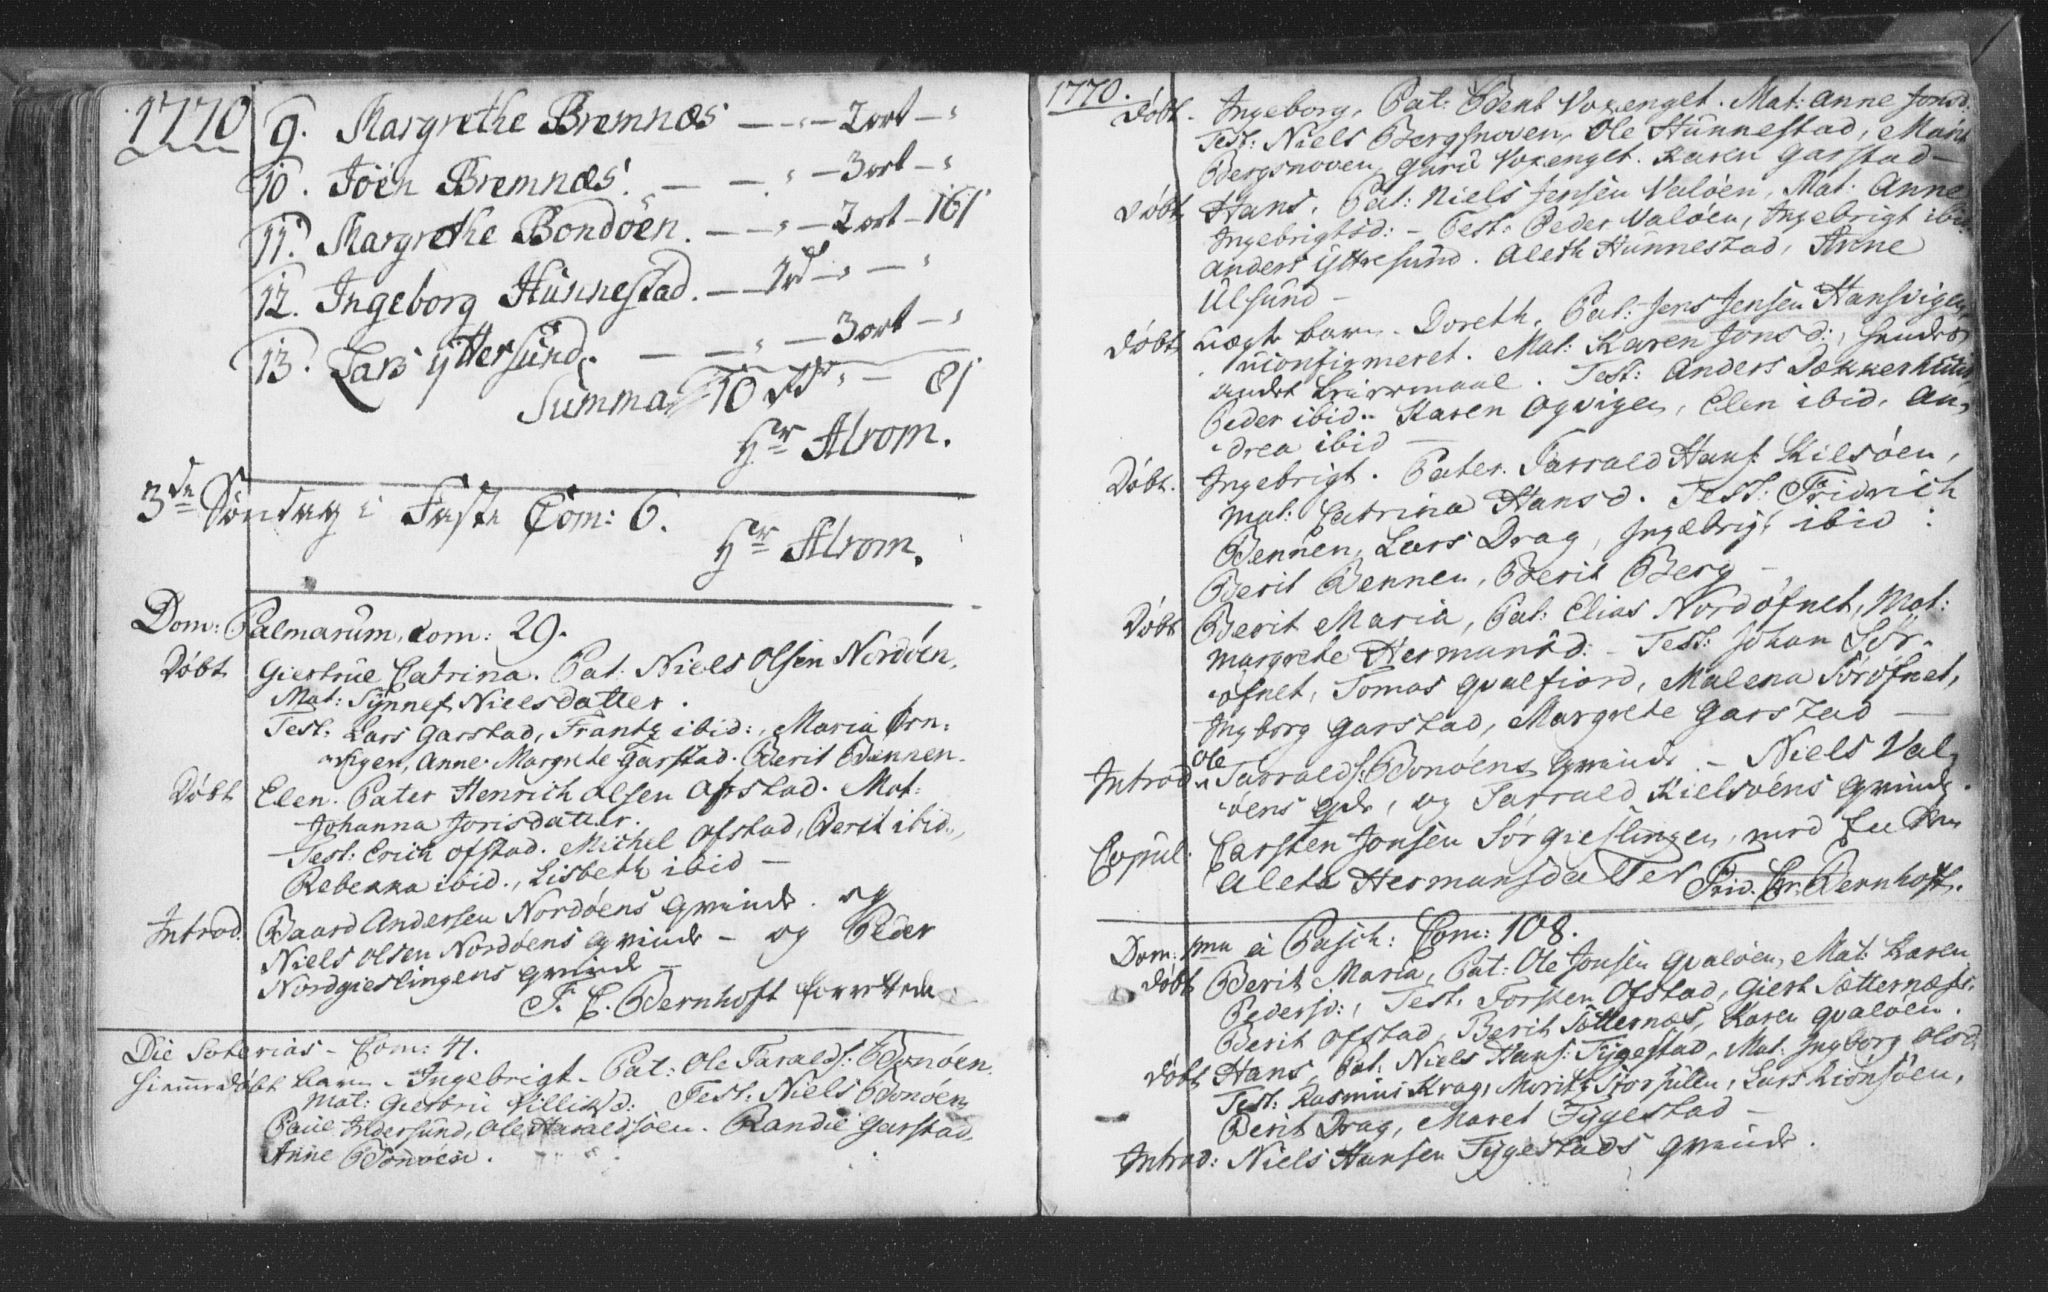 1770
9. Margrethe Bremnæs — „ — 2 ort — „
10. Joen Bremnæs. — — „ — 3 ort — „
11. Margrethe Bondøen. — „ — 2 ort — 16 ſ
12. Ingeborg Hunnestad. — 1 rd — „ — „
13. Lars Yttersund. — — „ — 3 ort — „
Summa 10 — 8 ſ
Hr Alrom.
3de Søndag i Faste Com: 6.
Hr Alrom.
Dom: Palmarum, Com: 29.
Døbt Giertrue Catrina. Pat: Niels Olsen Nordøen.
Mat: Synnef Nielsdatter.
Test: Lars Garstad, Frantz ibid:, Maria Örn-
vigen, Anne Margrete Garstad. Berit Bennen.
Døbt Elen. Pater Henrich Olsen Ofstad. Mat:
Johanna Jorisdatter.
Test: Erich Ofstad. Michel Ofstad, Berit ibid.,
Rebekka ibid., Lisbeth ibid —
Introd. Baard Andersen Nordøens Qvinde. og
Niels Olsen Nordøens Qvinde — og Peder
Nordgieslingens Qvinde —
F. C. Bernhoft forrettede.
Die Soterias — Com: 41.
Hiemmedøbt barn — Ingebrigt — Pat: Ole Taralds: Bonøen.
Mat: Giertru Villiksd: Test: Niels Bonøen,
Paue Indersund, Ole Haraldsøen. Randie Garstad,
Anne Bonøen.
1770.
Døbt. Ingeborg, Pat: Bent Voxenget. Mat: Anne Jonsd:
Test: Niels Bergsnoven, Ole Hunnestad, Marit
Bergsnoven, Guru Voxenget. Karen Garstad —
Døbt Hans, Pat: Niels Jensen Valøen, Mat: Anne
Ingebrigtsd: — Test: Peder Valøen, Ingebrigt ibid:
Anders Yttresund. Aleth Hunnestad, Anne
Ulsund —
Døbt uægte barn — Doreth, Pat: Jens Jensen Hansvigen,
uconfirmeret. Mat: Karen Jonsd:, hendes
andet Leiermaal. Test: Anders
Peder ibid — Karen Ogvigen, Elen ibid, An-
drea ibid —
Døbt. Ingebrigt. Pater. Tarrald Hans: Kilsøen,
Mat: Catrina Hansd. Test: Fridrich
Bennen, Lars Drag, Ingebrigt ibid:
Berit Bennen, Berit Berg —
Døbt Berit Maria, Pat: Elias Nordøfnet, Mat:
Margrete Hermansd: — Test: Johan Sør-
øfnet, Tomas Qvalfiord, Malena Sørøfnet,
Ingborg Garstad, Margrete Garstad —
Introd: Ole Tarralds: Bonøens Qvinde — Niels Val-
øens Qde, og Tarrald Kielsøens Qvinde.
Copul: Carsten Jonsen Sørgieslingen, med
Aleta Hermansdatter Frid. Chr. Bernhoft.
Dom: 1ma à Pasch: Com: 108.
Døbt Berit Maria, Pat: Ole Jonsen Qvaløen, Mat: Karen
Pedersd:, Test: Torsten Ofstad, Giert Sætternæs.
Berit Ofstad, Berit Sætternæs, Karen Qvaløen.
Døbt Hans, Pat: Niels Hans: Tygestad, Mat: Ingborg Olsd:
Test: Rasmus Krag, Morits Storsulen, Lars Kiønsøen,
Berit Drag, Maret Tygestad —
Introd: Niels Hansen Tygestads Qvinde.